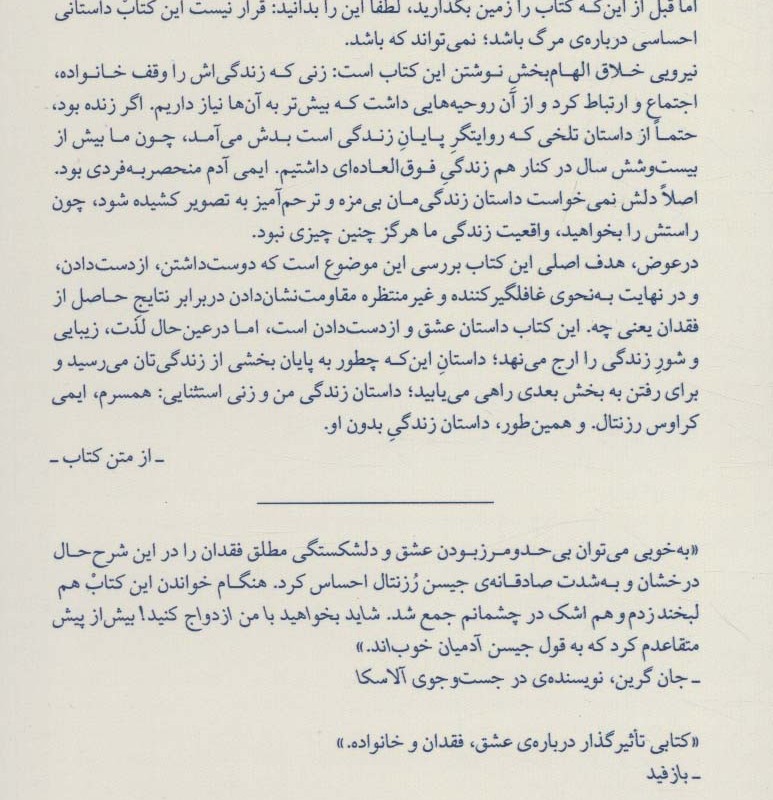 اما قبل از این‌که کتاب را زمین بگذارید، لطفاً این را بدانید: قرار نیست این کتاب داستانی
احساسی درباره‌ی مرگ باشد؛ نمی‌تواند که باشد.
نیرویی خلاق الهام‌بخشِ نوشتن این کتاب است: زنی که زندگی‌اش را وقف خانواده،
اجتماع و ارتباط کرد و از آن روحیه‌هایی داشت که بیش‌تر به آن‌ها نیاز داریم. اگر زنده بود،
حتماً از داستان تلخی که روایتگرِ پایانِ زندگی است بدش می‌آمد، چون ما بیش از
بیست‌وشش سال در کنار هم زندگیِ فوق‌العاده‌ای داشتیم. ایمی آدم منحصربه‌فردی بود.
اصلاً دلش نمی‌خواست داستان زندگی‌مان بی‌مزه و ترحم‌آمیز به تصویر کشیده شود، چون
راستش را بخواهید، واقعیت زندگی ما هرگز چنین چیزی نبود.
درعوض، هدف اصلی این کتاب بررسی این موضوع است که دوست‌داشتن، ازدست‌دادن،
و در نهایت به‌نحوی غافلگیرکننده و غیرمنتظره مقاومت‌نشان‌دادن دربرابر نتایجِ حاصل از
فقدان یعنی چه. این کتاب داستان عشق و ازدست‌دادن است، اما درعین‌حال لذت، زیبایی
و شورِ زندگی را ارج می‌نهد؛ داستانِ این‌که چطور به پایان بخشی از زندگی‌تان می‌رسید و
برای رفتن به بخش بعدی راهی می‌یابید؛ داستان زندگی من و زنی استثنایی: همسرم، ایمی
کراوس رزنتال. و همین‌طور، داستان زندگیِ بدون او.
ـ از متن کتاب ـ
«به‌خوبی می‌توان بی‌حدومرزبودن عشق و دلشکستگی مطلق فقدان را در این شرح‌حال
درخشان و به‌شدت صادقانه‌ی جیسن رُزنتال احساس کرد. هنگام خواندن این کتابْ هم
لبخند زدم و هم اشک در چشمانم جمع شد. شاید بخواهید با من ازدواج کنید! بیش‌از پیش
متقاعدم کرد که به قول جیسن آدمیان خوب‌اند.»
ـ جان گرین، نویسنده‌ی در جست‌وجوی آلاسکا
«کتابی تأثیرگذار درباره‌ی عشق، فقدان و خانواده.»
ـ بازفید